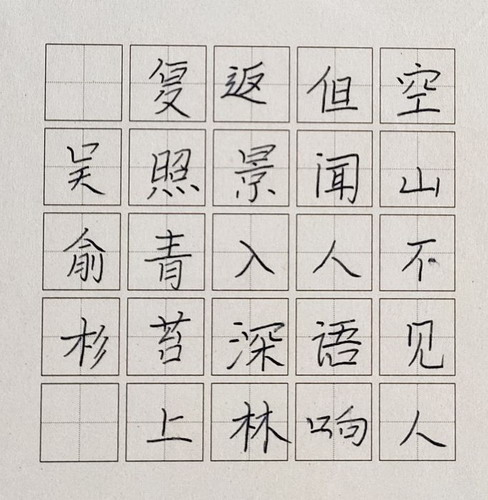 空山不见人
但闻人语响
返景入深林
复照青苔上
吴俞杉